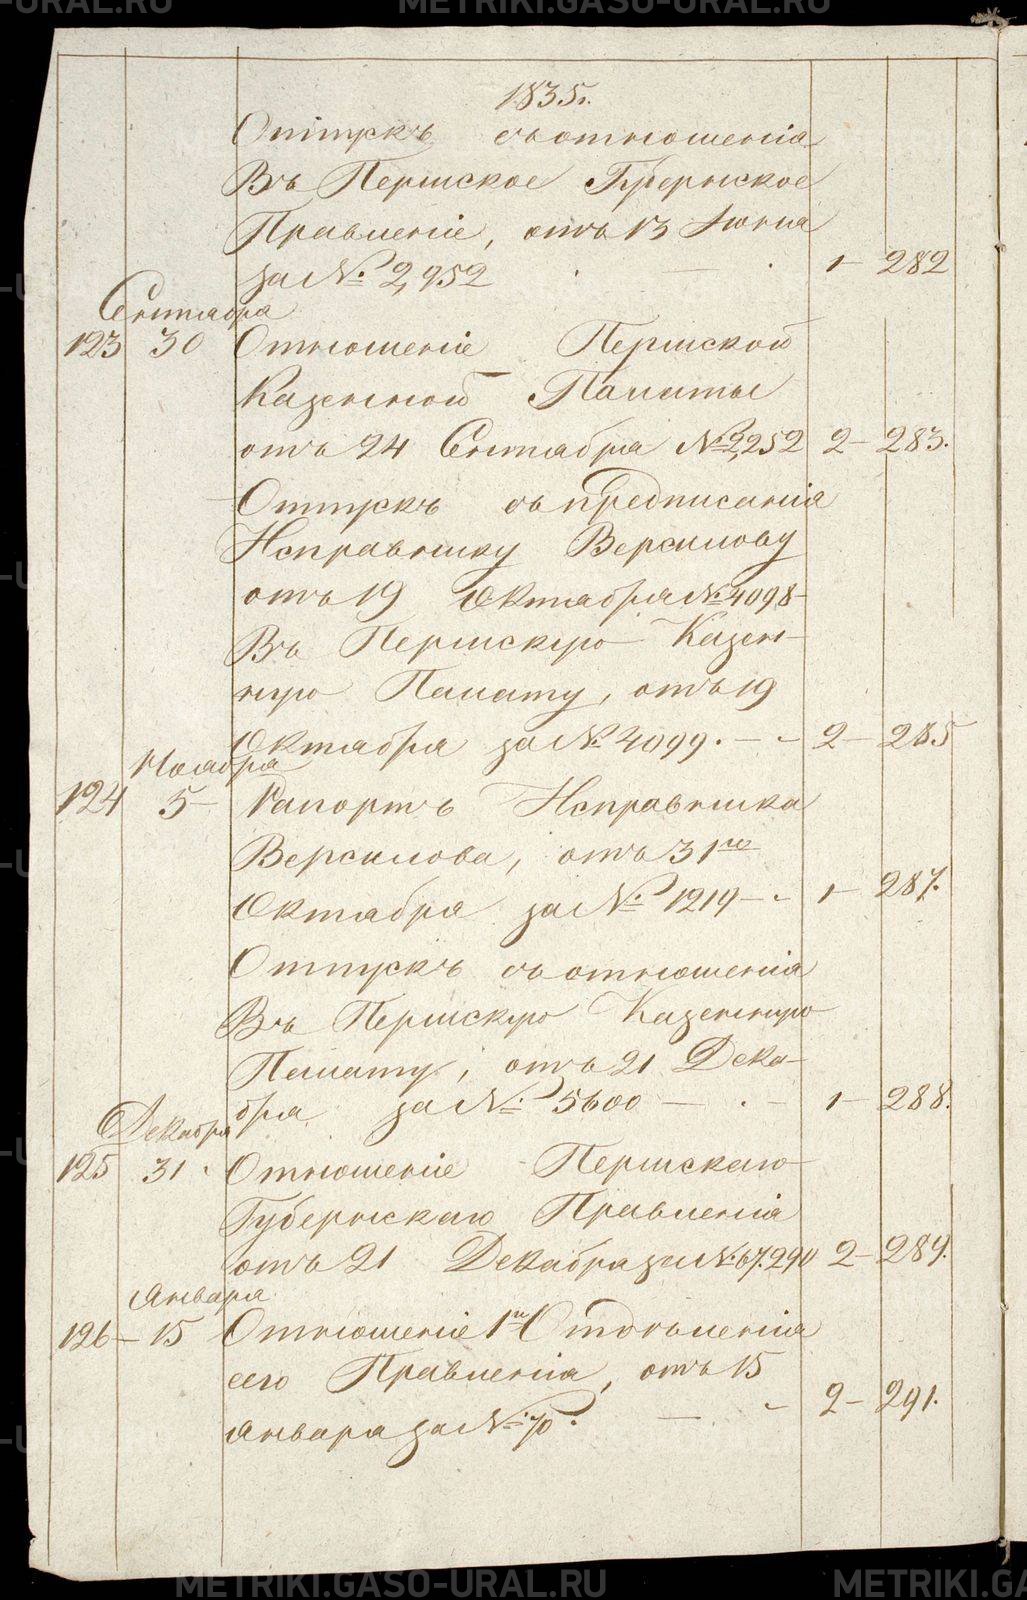 METRIKI.GASO-URAL.RU
1835г.
Отпускъ съ отношенія
Въ Пермское Губернское
Правленіе, отъ 13 Іюня
за № 2,952 1 - 282
Сентября
123 30 Отношеніе Пермской
Казенной Палаты
отъ 24 Сентября № 2,252 2 - 283.
Отпускъ съ предписанія
Исправнику Версилову
отъ 19 Октября № 4098 -
Въ Пермскую Казен-
ную Палату, отъ 19
Октября за № 4099. - - 2 - 285
Ноября
124 5 - Рапортъ Исправника
Версилова, отъ 31го
Октября за № 1219 - - 1 - 287.
Отпускъ съ отношенія
Въ Пермскую Казенную
Палату, отъ 21 Дека-
бря за № 5600 - . - 1 - 288.
Декабря
125 31. Отношеніе Пермскаго
Губернскаго Правленія
отъ 21 Декабря за № 67.290 2 - 289.
Января
126 - 15 Отношеніе 1го Отдѣленія
сего Правленія, отъ 15
Января за № 70. - - 2 - 291.
METRIKI.GASO-URAL.RU
METRIKI.GA